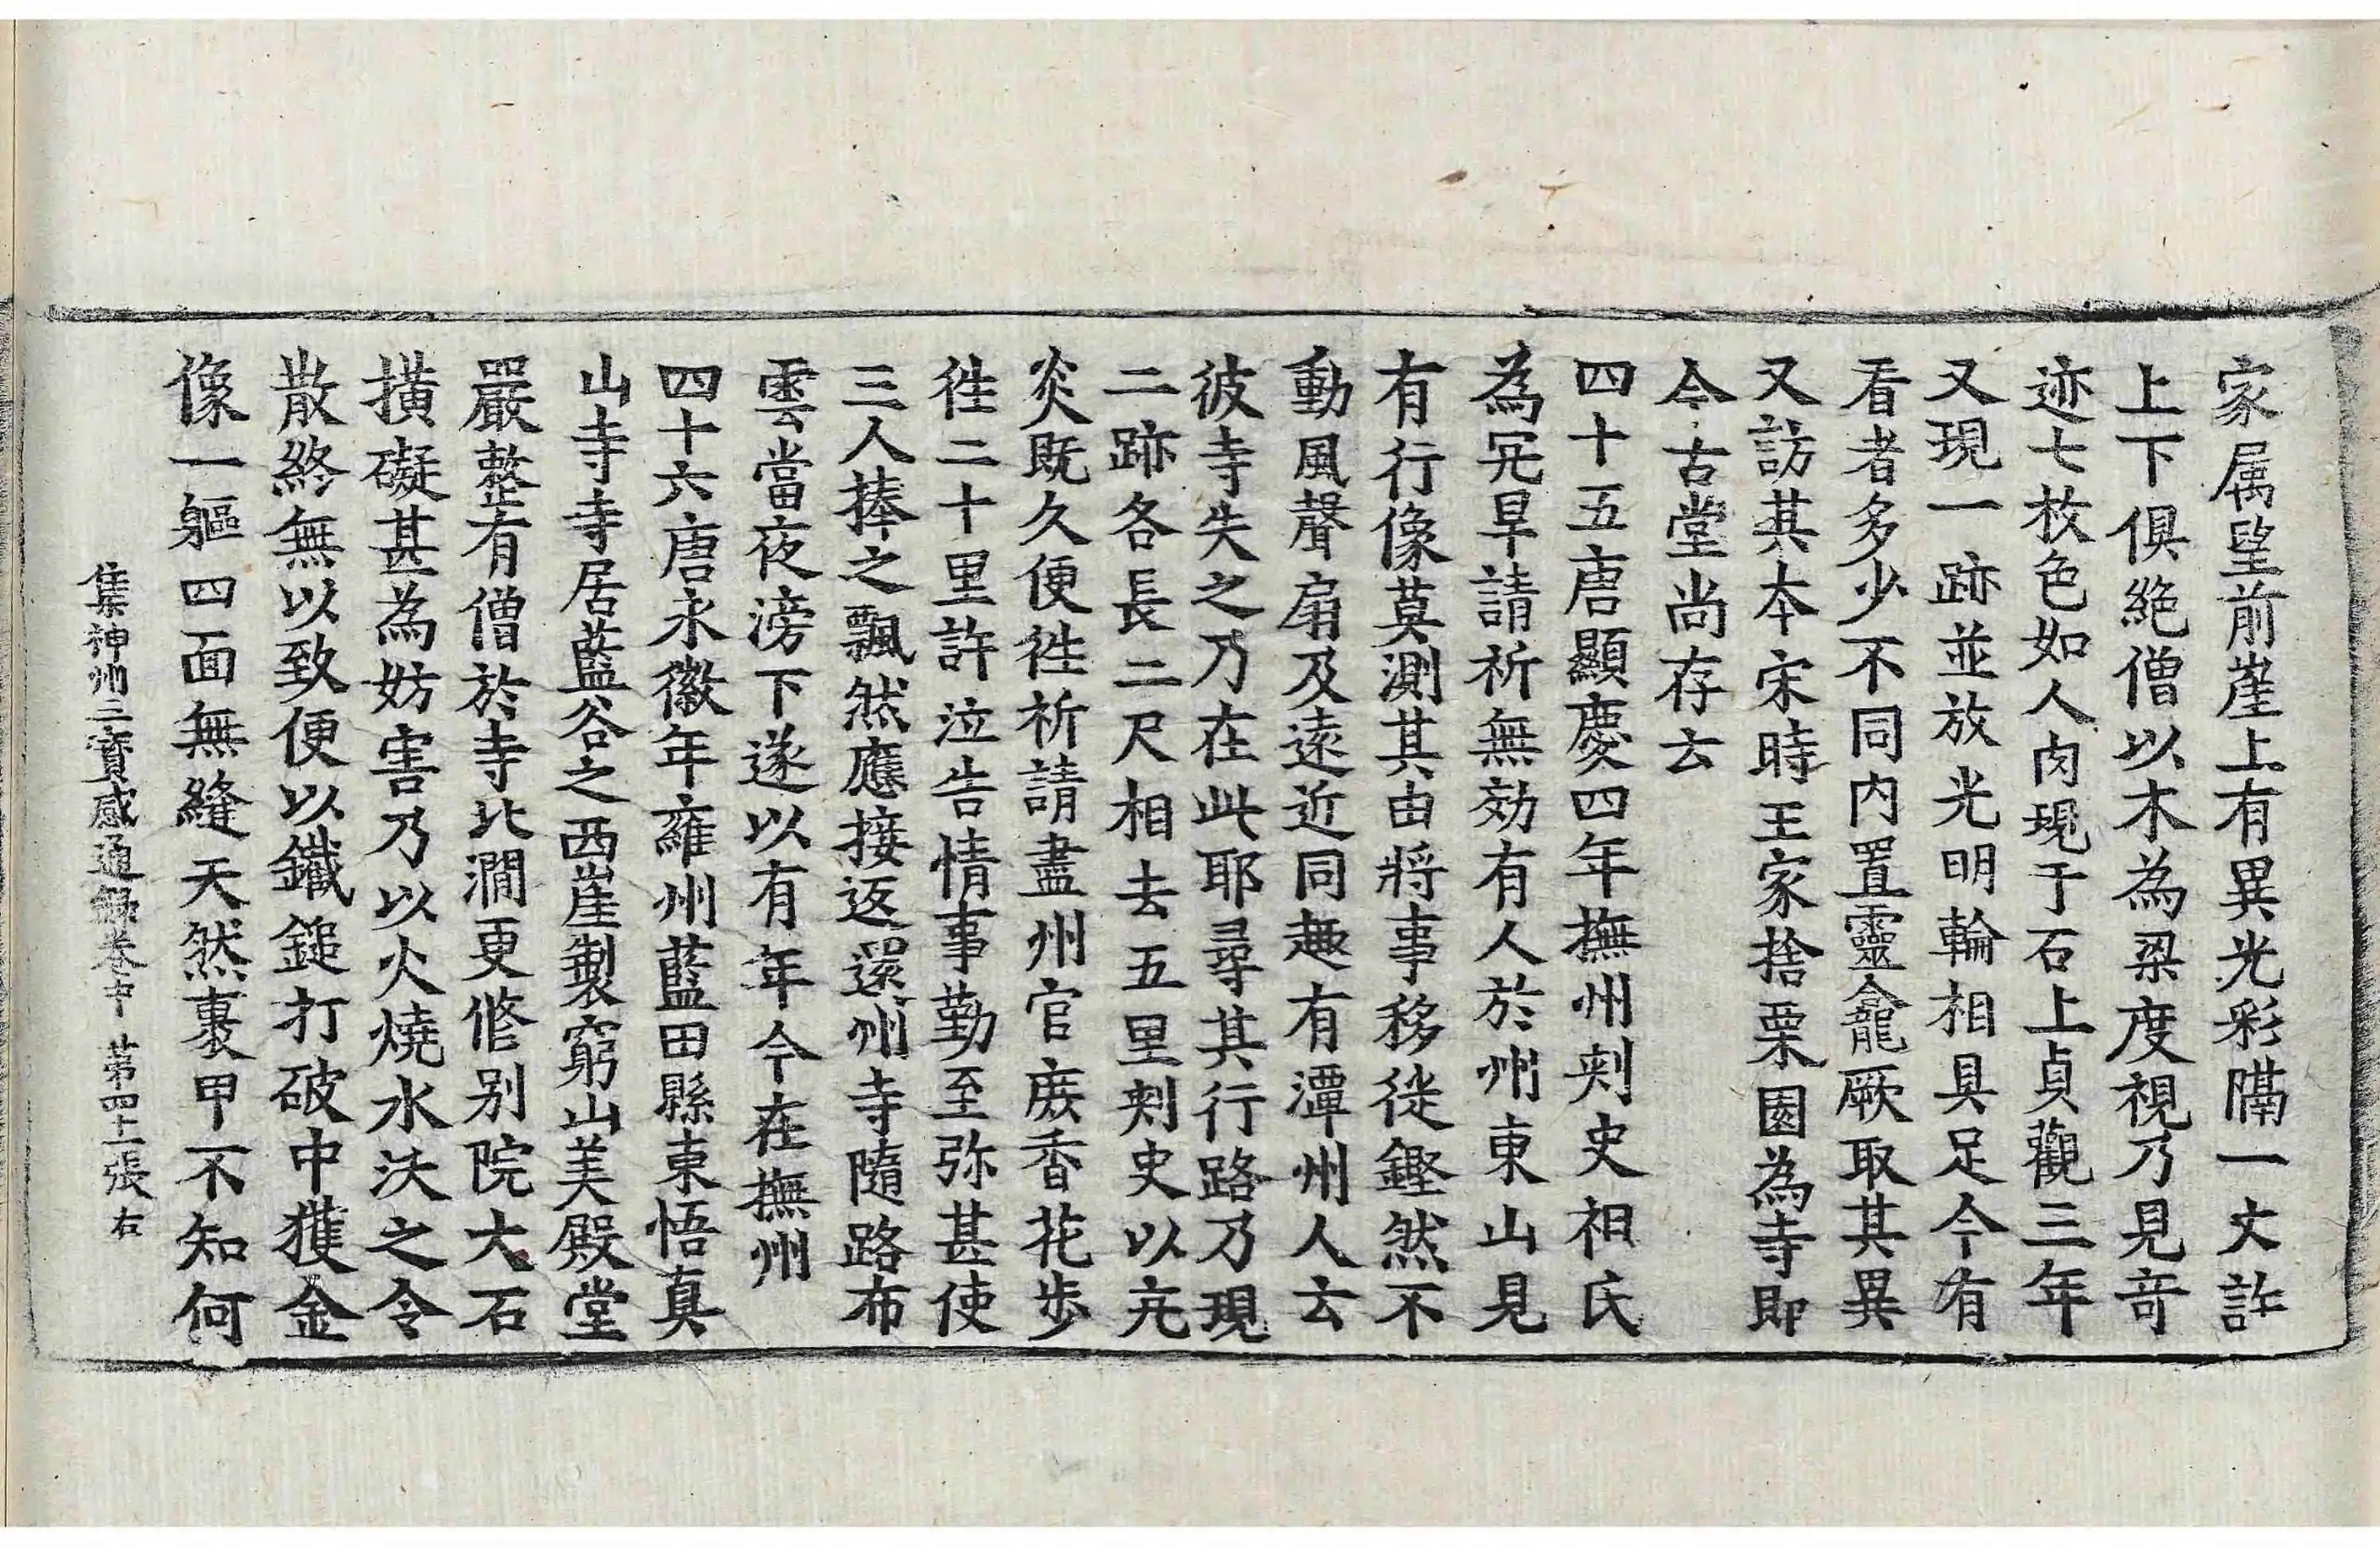 家属望前崖上有異光彩隔一丈許
上下俱絶僧以木為梁度視乃見竒
迹七枚色如人肉現于石上貞觀三年
又現一跡並放光明輪相具足今有
看者多少不同内置靈龕厥取其異
又訪其本宋時王家捨栗園為寺即
今古堂尚存云
四十五唐顯慶四年撫州刾史祖氏
為亢旱請祈無効有人於州東山見
有行像莫測其由將事移徙鏗然不
動風聲扇及遠近同趣有潭州人云
彼寺失之乃在此耶尋其行路乃現
二跡各長二尺相去五里刾史以亢
炎既久便徃祈請盡州官庻香花步
徃二十里許泣告情事勤至弥甚使
三人捧之飄然應接返還州寺隨路布
雲當夜滂下遂以有年今在撫州
四十六唐永徽年雍州藍田縣東悟真
山寺寺居藍谷之西崖製窮山美殿堂
嚴整有僧於寺北澗更修别院大石
撗礙甚為妨害乃以火燒水沃之令
散終無以致便以鐵鎚打破中獲金
像一軀四面無縫天然裹甲不知何
集神州三寳感通録卷中 苐四上張 右